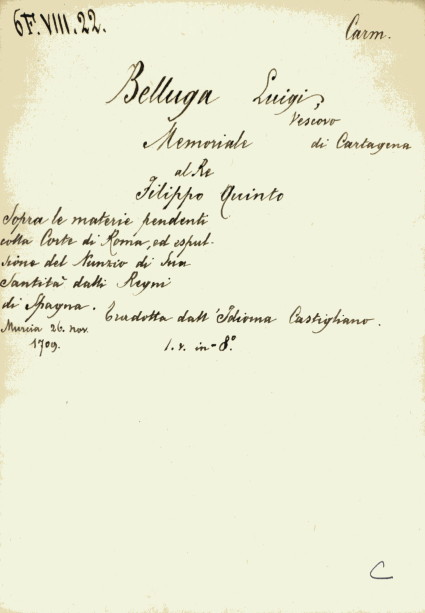 6F.VIII.22.
Carm.
Belluga Luigi,
Vescovo
Memoriale di Cartagena
al Re
Filippo Quinto
Sopra le materie pendenti
colla Corte di Roma, ed espul-
sione del Nunzio di Sua
Santità dalli Regni
di Spagna. Tradotta dall'Idioma Castigliano.
Murcia 26. nov.
1709. 1. v. in-8°.
C